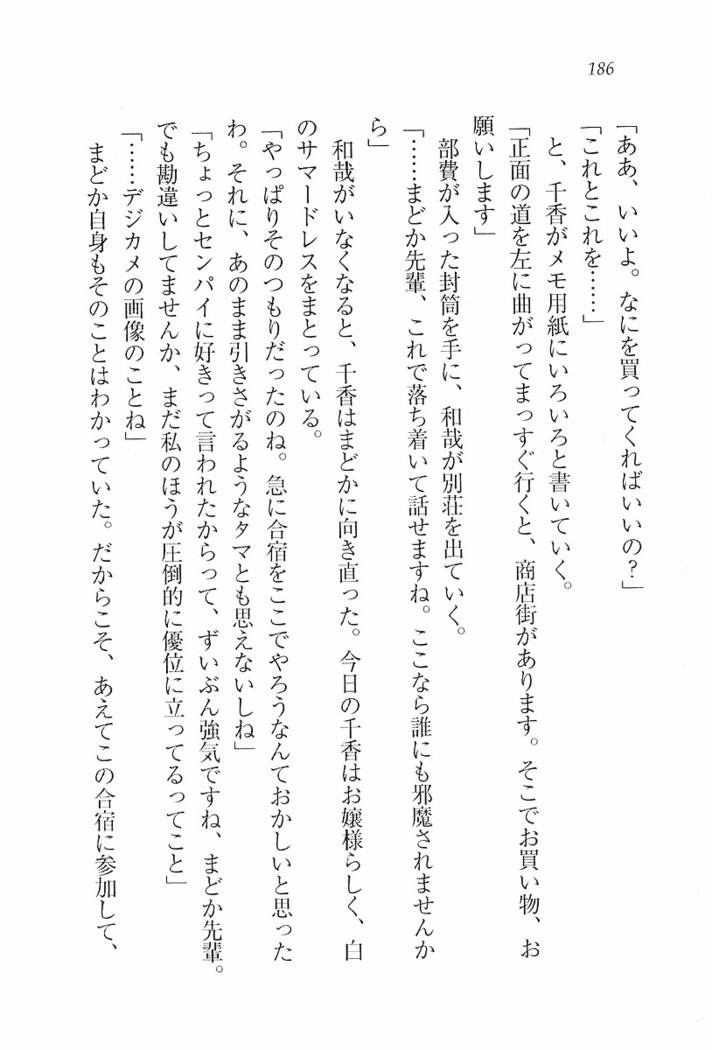 186
「ああ、いいよ。なにを買ってくればいいの？」
「これとこれを……」
と、千香がメモ用紙にいろいろと書いていく。
「正面の道を左に曲がってまっすぐ行くと、商店街があります。そこでお買い物、お
願いします」
部費が入った封筒を手に、和哉が別荘を出ていく。
「……まどか先輩、これで落ち着いて話せますね。ここなら誰にも邪魔されませんか
ら」
和哉がいなくなると、千香はまどかに向き直った。今日の千香はお嬢様らしく、白
のサマードレスをまとっている。
「やっぱりそのつもりだったのね。急に合宿をここでやろうなんておかしいと思った
わ。それに、あのまま引きさがるようなタマとも思えないしね」
「ちょっとセンパイに好きって言われたからって、ずいぶん強気ですね、まどか先輩。
でも勘違いしてませんか、まだ私のほうが圧倒的に優位に立ってるってこと」
「……デジカメの画像のことね」
まどか自身もそのことはわかっていた。だからこそ、あえてこの合宿に参加して、